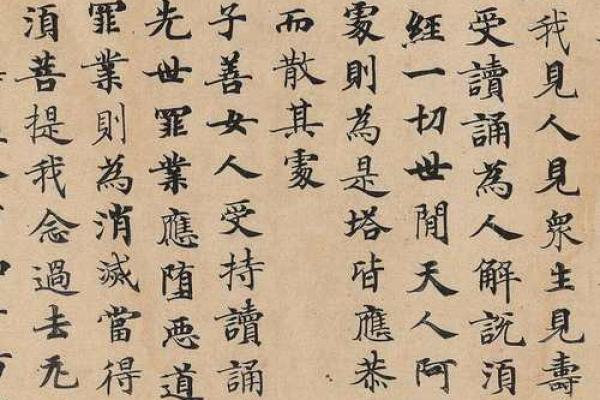 我見人見衆生見壽
受讀誦為人解說須
經一切世間天人阿
處則為是塔皆應恭
而散其處
子善女人受持讀誦
先世罪業應墮惡道
罪業則為消滅當得
須菩提我念過去无